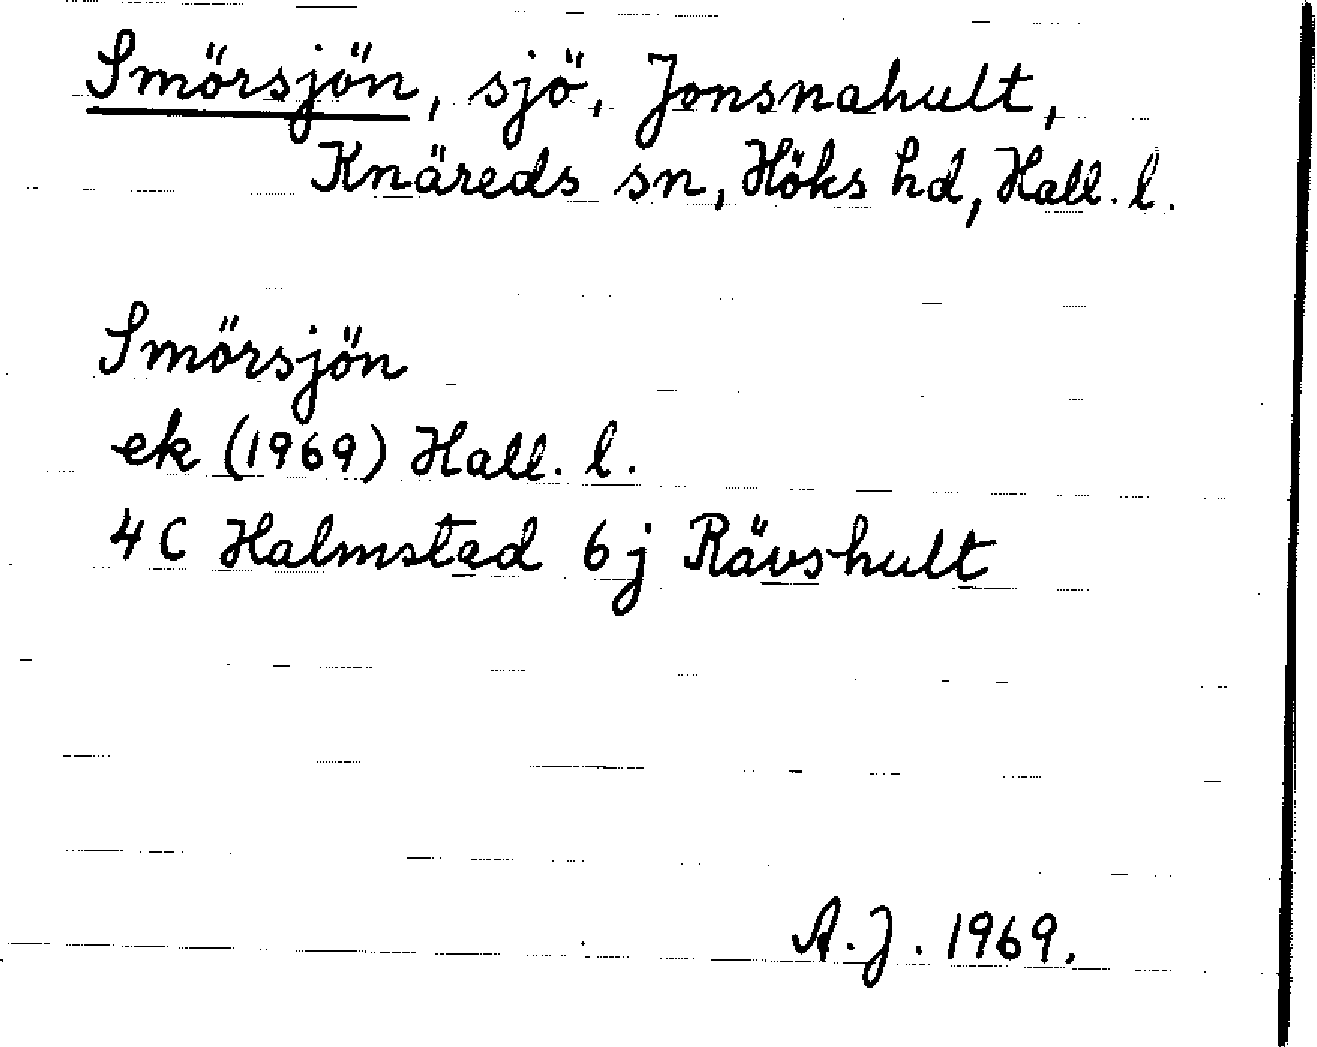 Smörsjön, sjö, Jonsnahult,
Knäreds sn, Höks hd, Hall. l.
Smörsjön
ek (1969) Hall. l.
4 C Halmstad 6 j Rävshult
A. J. 1969.